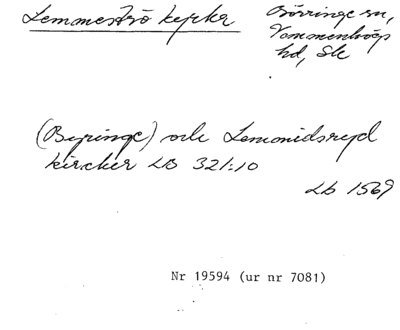 Lemmeströ kyrka
Börringe sn,
Vemmenhögs
hd, Sk
(Byringe) och Lemonidsryd
kircker LB 321:10
Lb 1569
Nr 19594 (ur nr 7081)